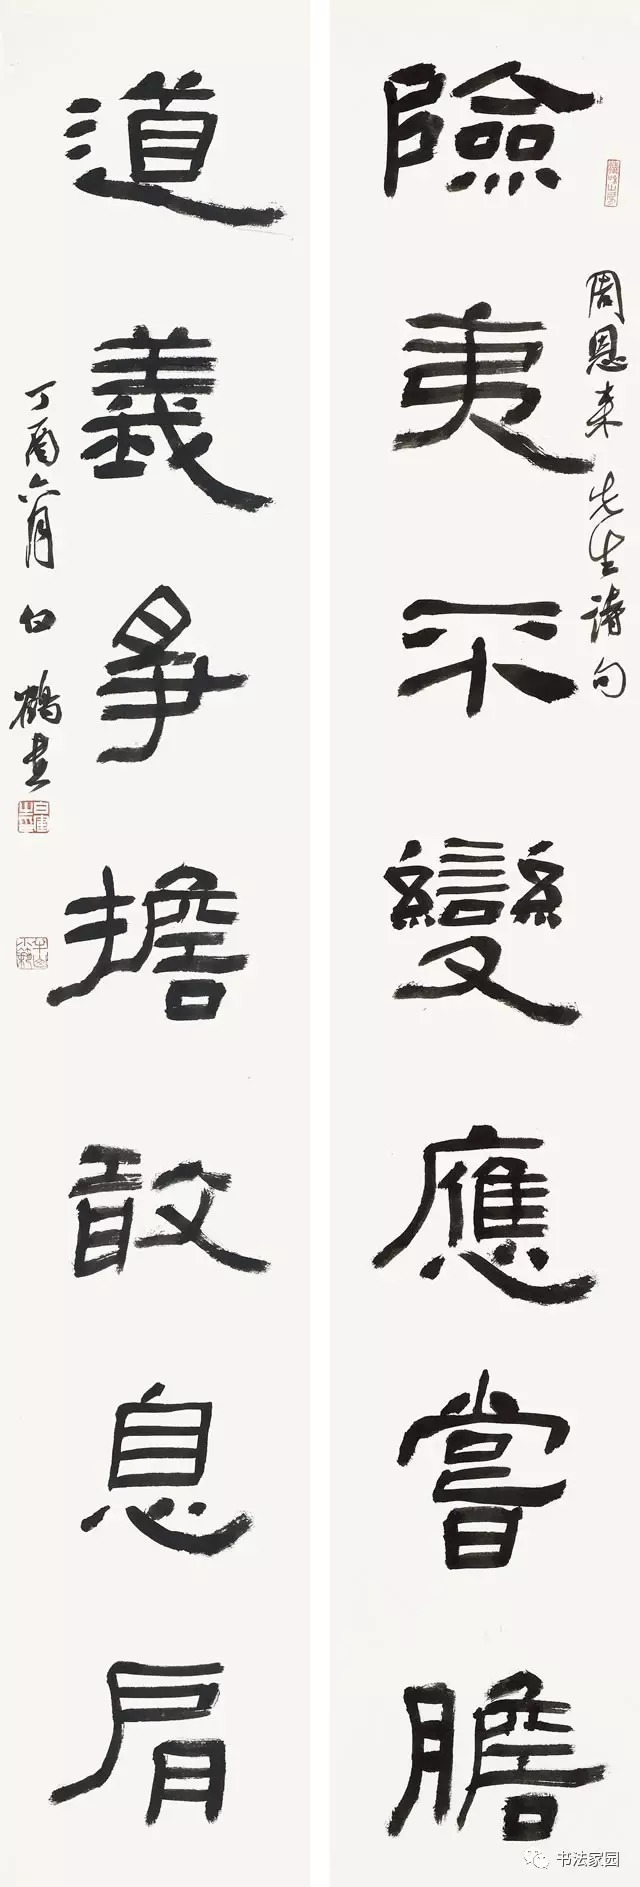 險夷不變應嘗膽
周恩来先生詩句
道義爭擔敢息肩
丁酉六月白鶴書
书法家园